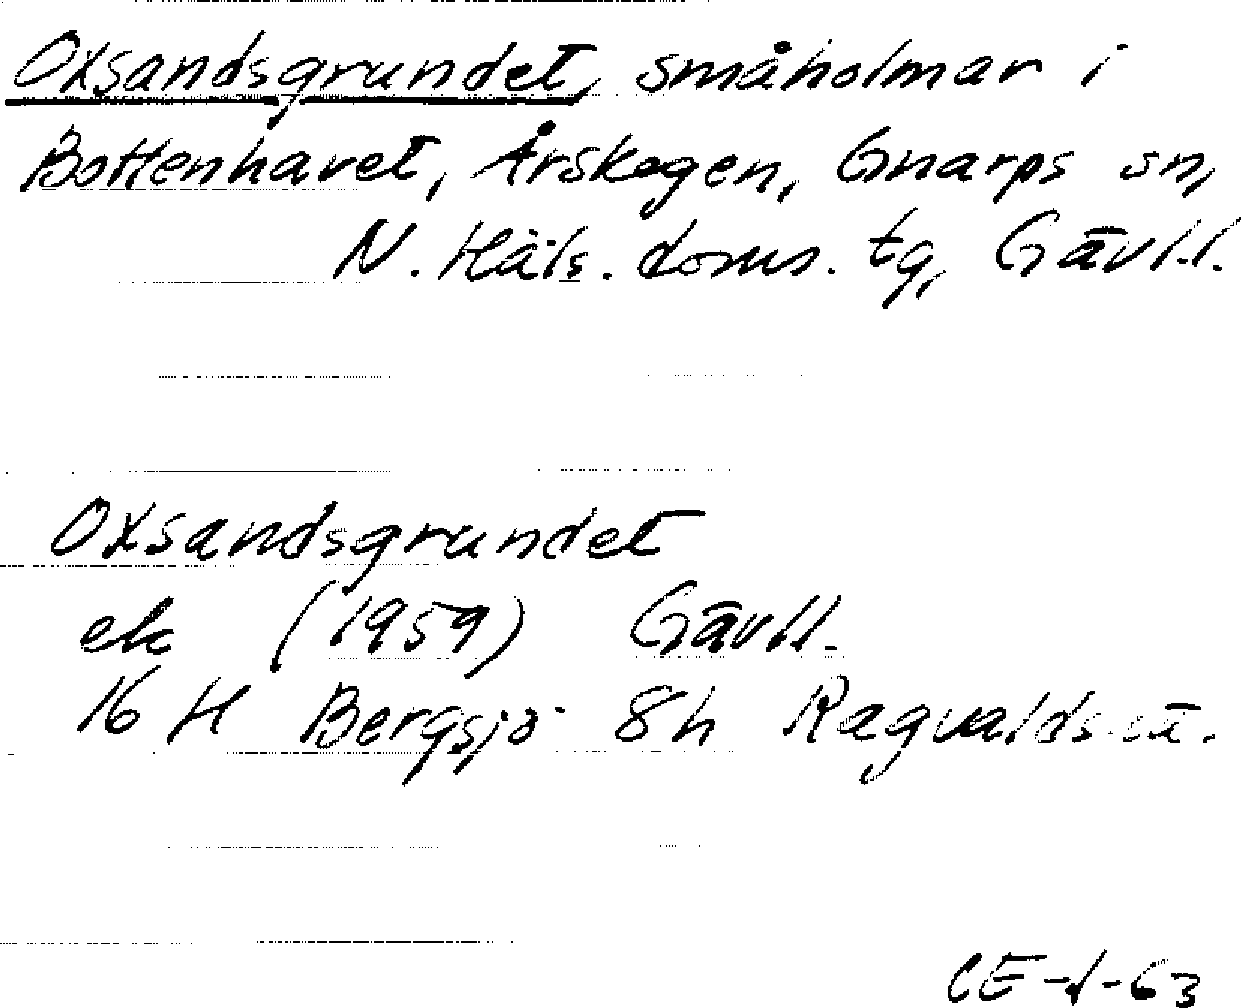 Oxsandsgrundet, småholmar i
Bottenhavet, Årskogen, Gnarps sn,
N. Häls. doms. tg, Gävl.l.
Oxsandsgrundet
ek (1959) Gävl.l.
16 H Bergsjö 8h
CE-1-63